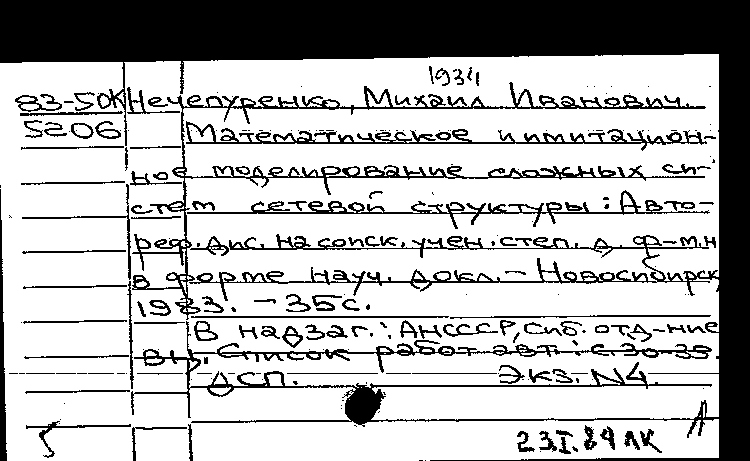 1934
83-50К Нечепуренко, Михаил Иванович.
5206 Математическое и имитацион-
ное моделирование сложных си-
стем сетевой структуры: Авто-
реф. дис. на соиск. учен. степ. д. ф-м.н
в форме науч. докл. - Новосибирск,
1983. - 35 с.
В надзаг.: АНСССР, Сиб. отд-ние
ВЦ. Список работ авт.: с. 30-35.
ДСП. Экз. N4.
23.I.84 ЛК